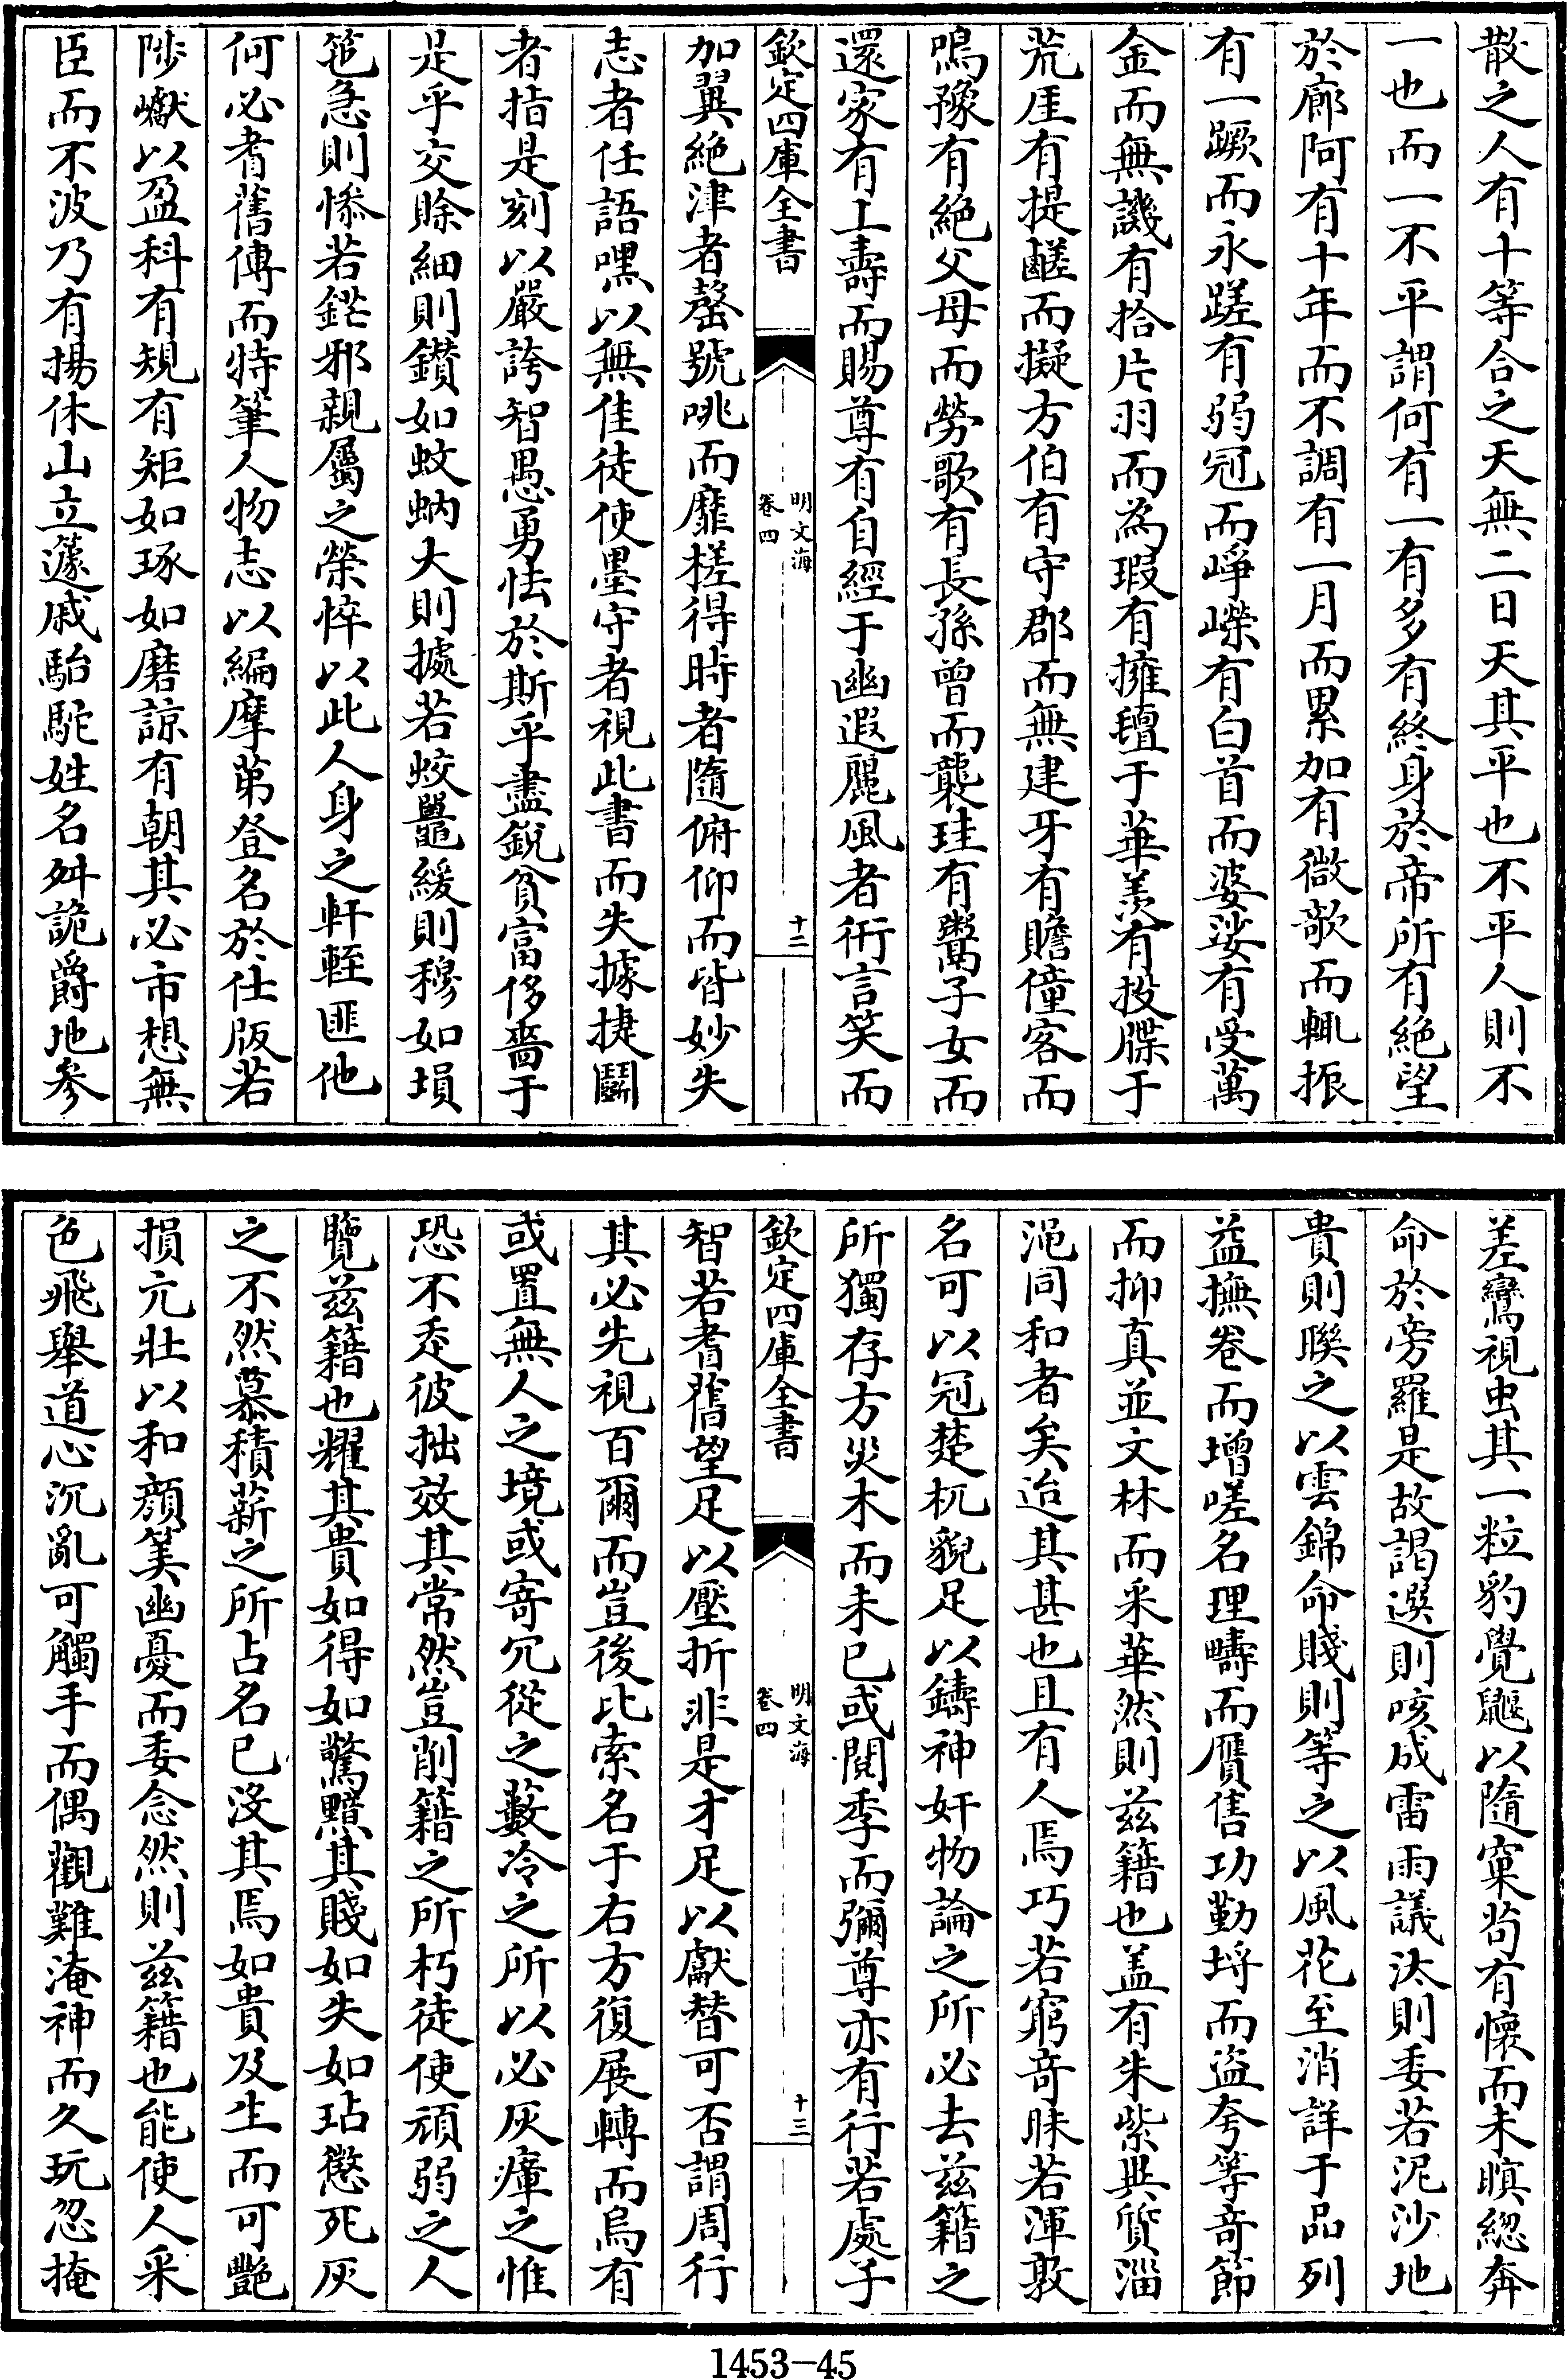 散之人有十等合之天無二日天其平也不平人則不
一也而一不平謂何有一有多有終身於帝所有絶望
於廊阿有十年而不調有一月而累加有微欹而輒振
有一蹶而永蹉有弱冠而崢嶸有白首而婆娑有受萬
金而無譏有拾片羽而為瑕有擁氊于華羨有投牒于
荒厓有提齷而擬方伯有守郡而無建牙有贍僮客而
鳴豫有絶父母而勞歌有長孫曾而襲珪有鬻子女而
還家有上壽而賜尊有自經于幽遐麗風者術言笑而
欽定四庫全書
明文海
卷四
十二
加翼絶津者罄號咷而靡槎得時者隨俯仰而皆妙失
志者任語嘿以無佳徒使墨守者視此書而失據捷鬭
者指是刻以嚴誇智愚勇怯於斯乎盡銳貧富侈嗇于
是乎交賒細則鑽如蚊蚋大則據若蛟鼉緩則穆如塤
笆急則慘若鋩邪親屬之榮悴以此人身之軒輊匪他
何必耆舊傳而特筆人物志以編摩第登名於仕版若
陟巘以盈科有規有矩如琢如磨諒有朝其必市想無
臣而不波乃有揚休山立蘧戚駘駝姓名舛詭爵地參
差鸞視虫其一粒豹覺鼴以隨窠茍有懷而未瞑緫奔
命於旁羅是故謁選則咳成雷雨議汰則委若泥沙地
貴則聯之以雲錦命賤則等之以風花至消詳于品列
益撫卷而增嗟名理疇而贋售功勤埒而盜夸等竒節
而抑真並文林而采華然則兹籍也盖有朱紫與質淄
澠同和者矣迨其甚也且有人焉巧若窮竒昧若渾敦
名可以冠楚杌貌足以鑄神奸物論之所必去兹籍之
所獨存方災木而未已或閲季而彌尊亦有行若處子
欽定四庫全書
明文海
卷四
十三
智若耆舊望足以壓折非是才足以獻替可否謂周行
其必先視百爾而豈後比索名于右方復展轉而烏有
或置無人之境或寄冗從之藪冷之所以必灰瘴之惟
恐不走彼拙效其常然豈削籍之所朽徒使頑弱之人
覽兹籍也耀其貴如得如驚黯其賤如失如玷懲死灰
之不然慕積薪之所占名已沒其焉如貴及生而可艷
損元壯以和顔筭幽憂而委念然則兹籍也能使人采
色飛舉道心沉亂可觸手而偶觀難淹神而久玩忽掩
1453-45